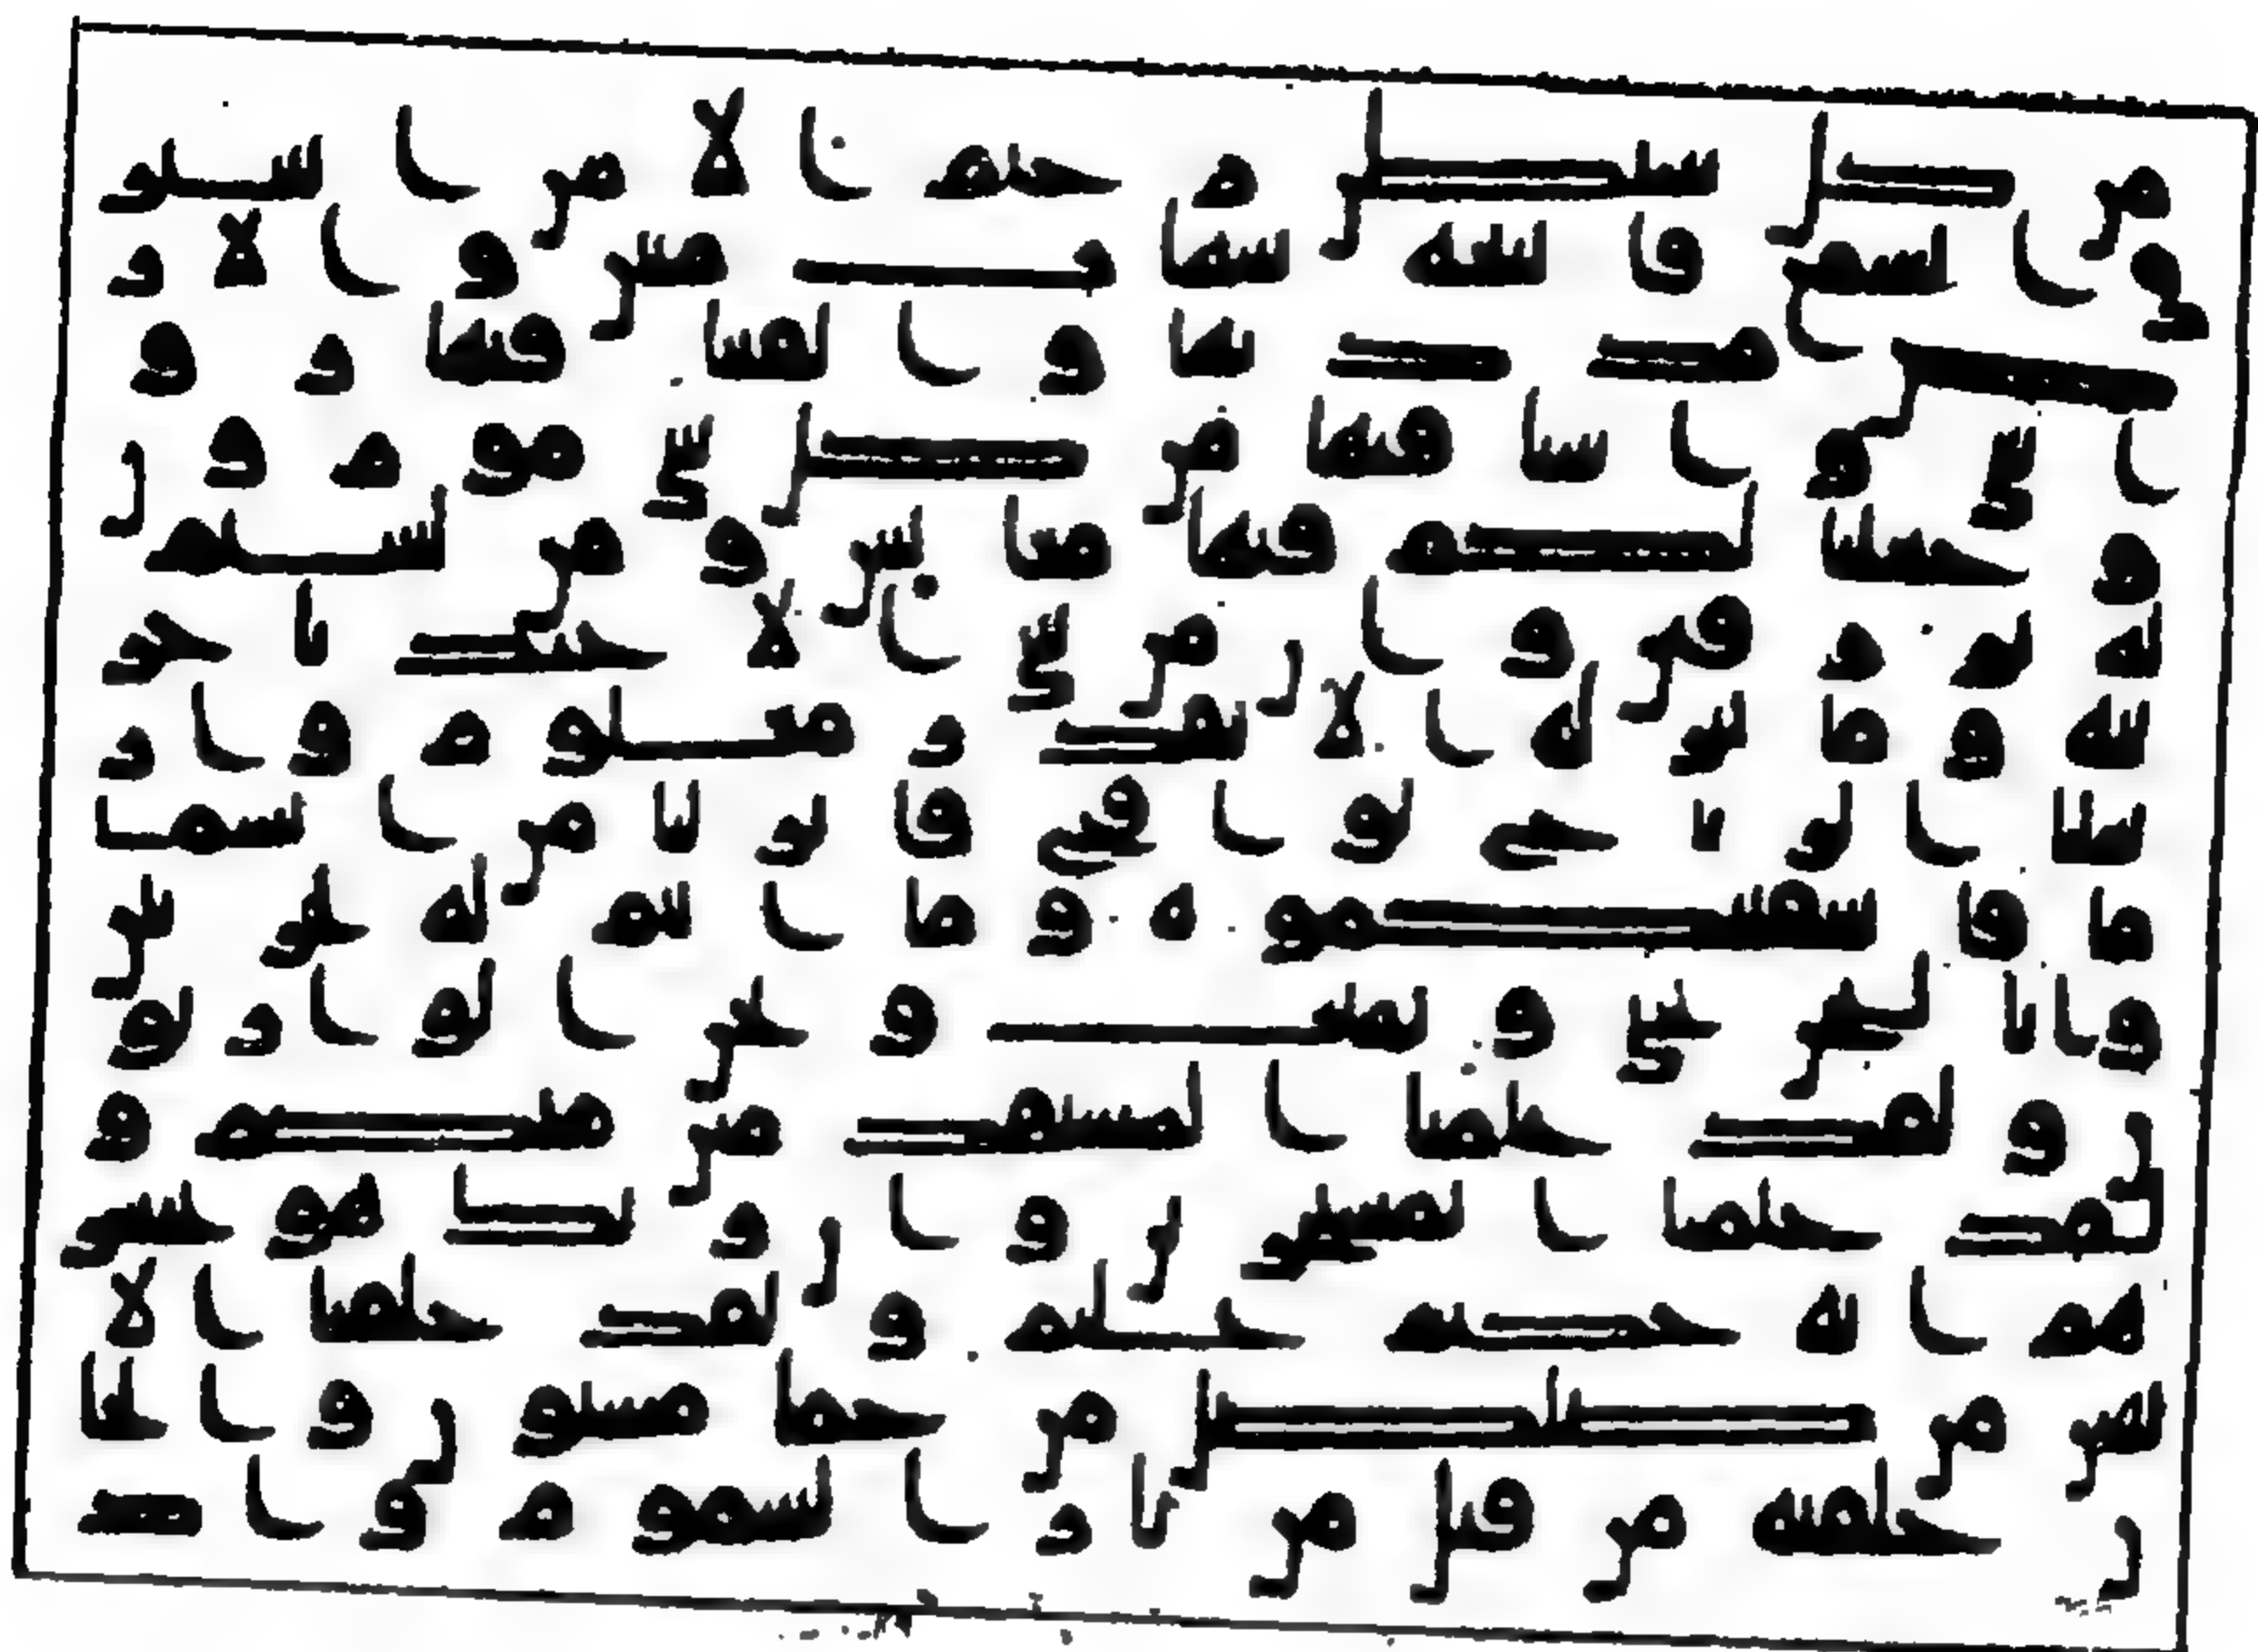 من كل شيطن رجيم الا من استر
ق السمع فاتبعه شهاب مبين والار
ض مددنها والقينا فيها رو
اسي وانبتنا فيها من كل شي موزون
وجعلنا لكم فيها معيش ومن لستم
له برزقين وان من شي الا عندنا خز
ئنه وما ننزله الا بقدر معلوم وار
سلنا الريح لواقح فانزلنا من السما
ما فاسقينكموه وما انتم له بخزنين
وانا لنحن نحي ونميت ونحن الوارثو
ن ولقد علمنا المستقدمين منكم و
لقد علمنا المستخرين وان ربك هو يحشر
هم انه حكيم عليم ولقد خلقنا الا
نسن من صلصل من حما مسنون والجا
ن خلقنه من قبل من نار السموم واذ